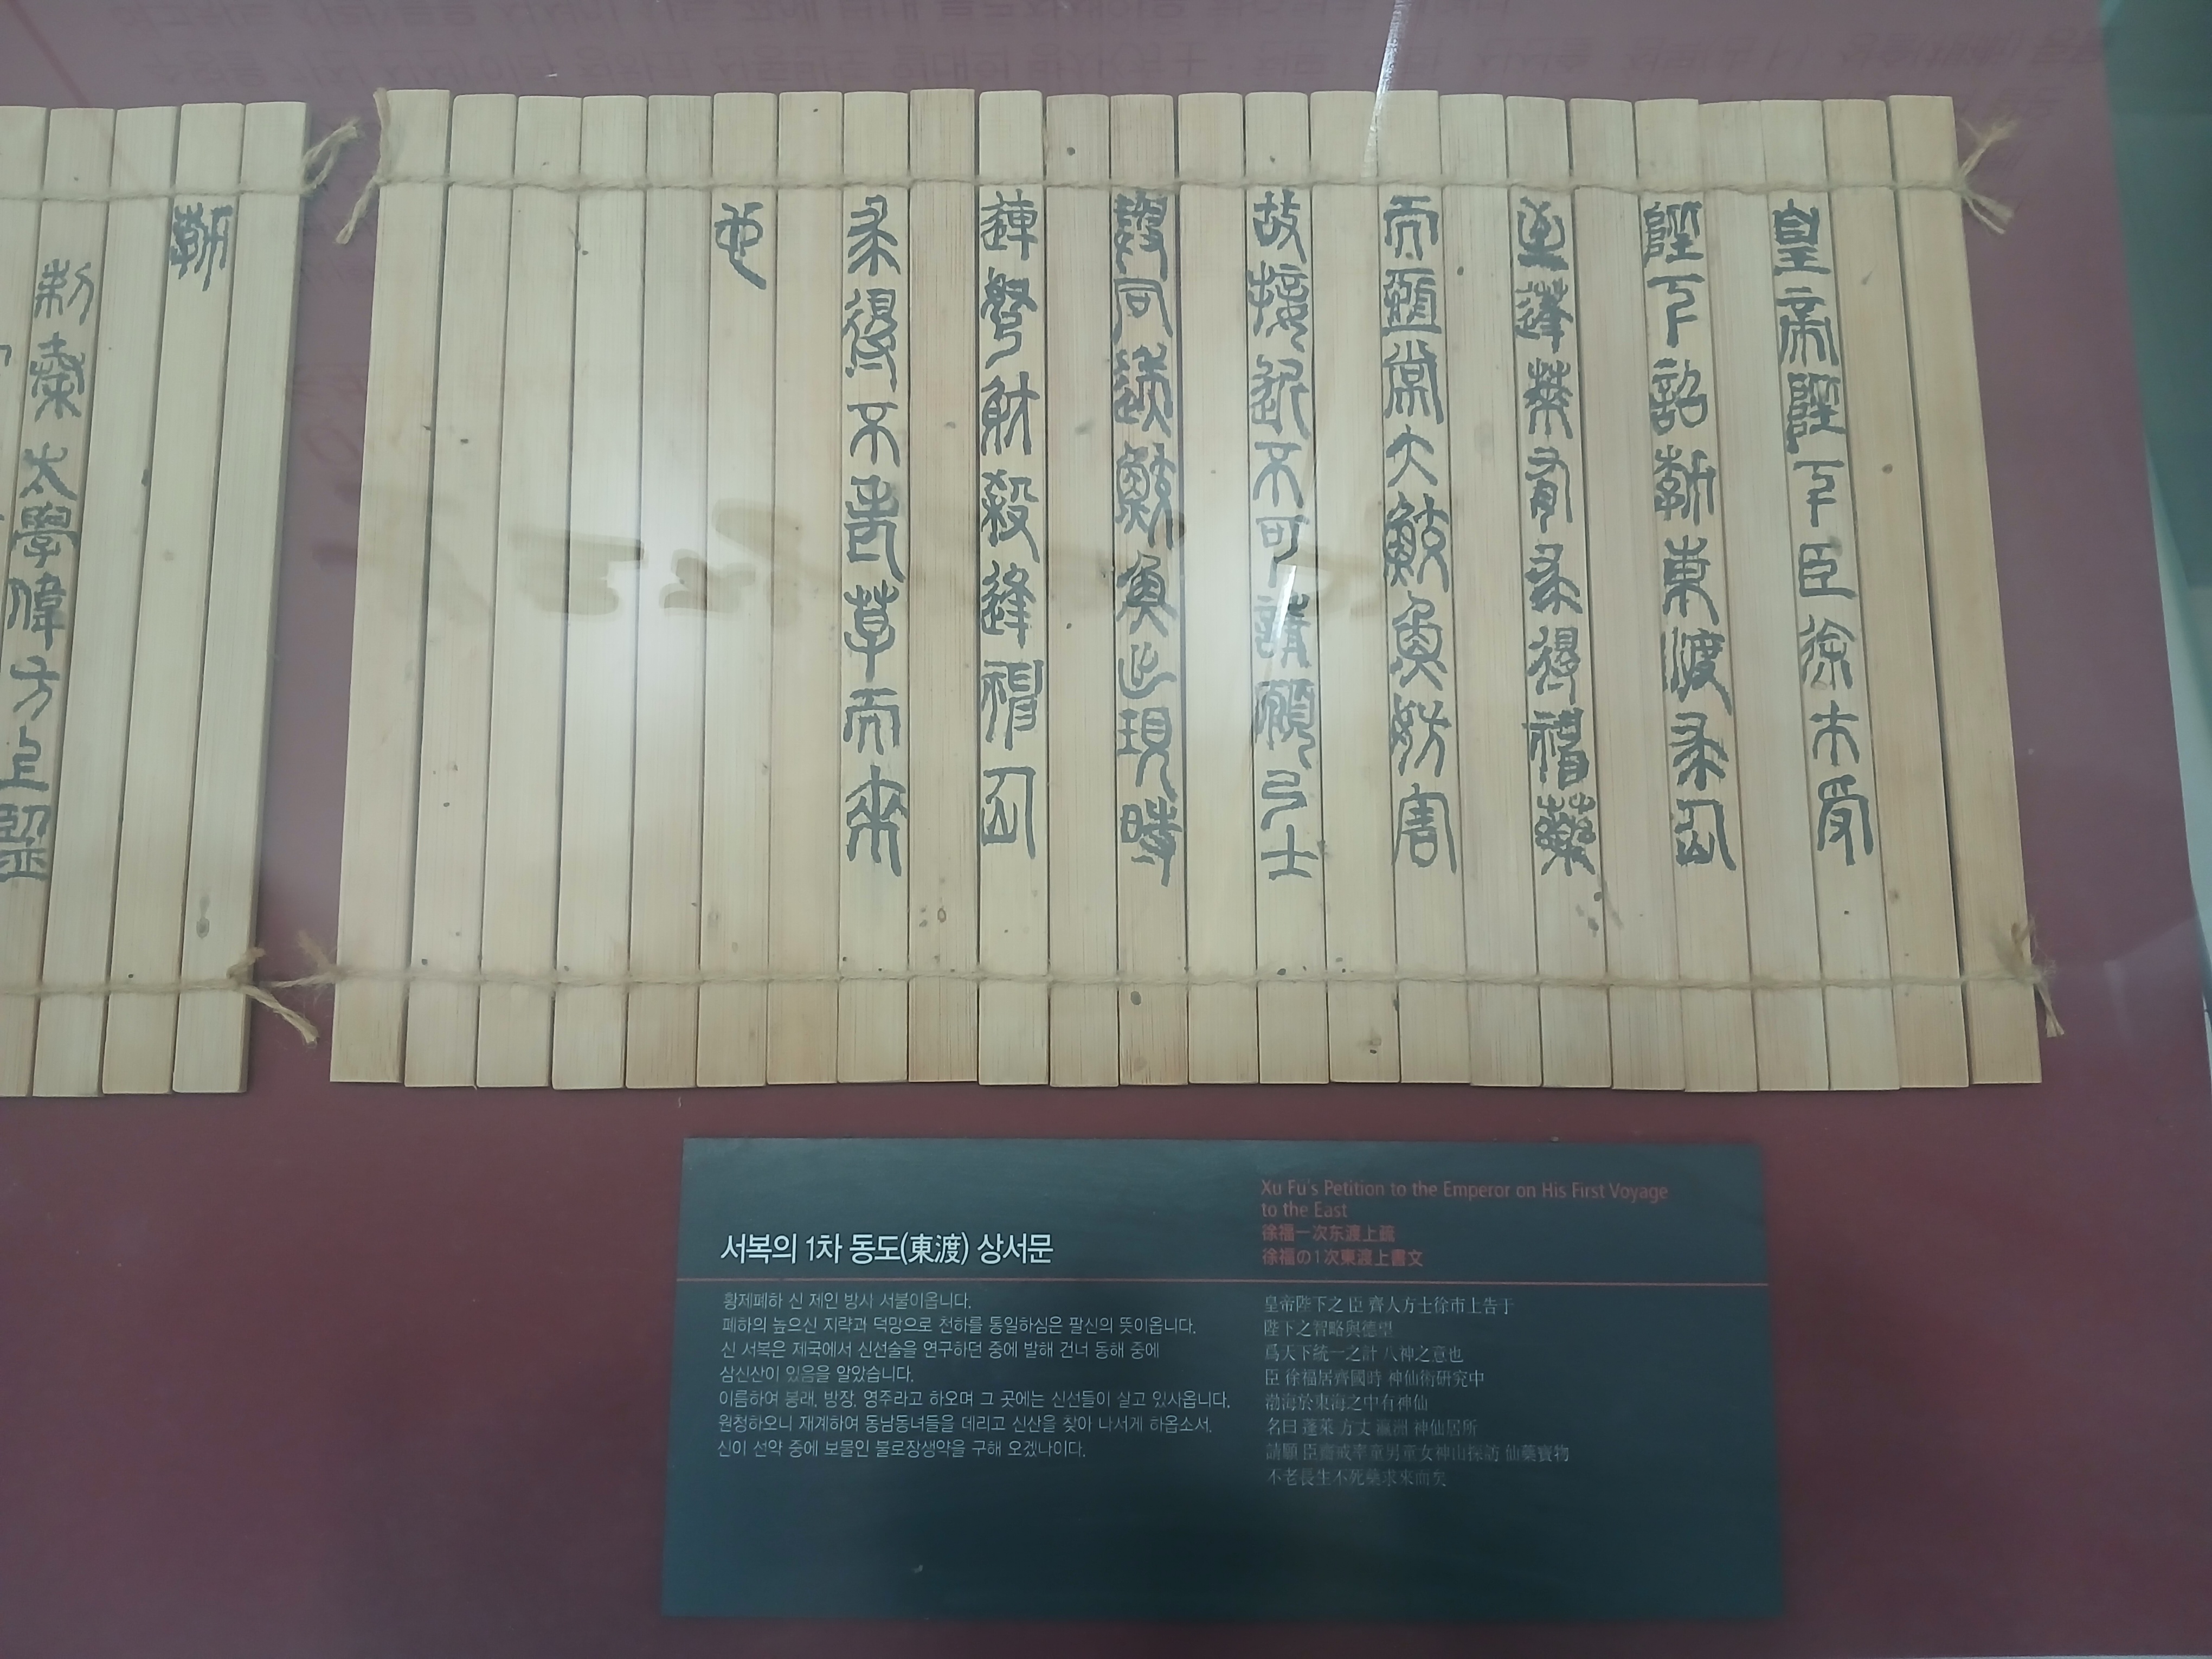 皇帝陛下臣徐巿受
陛下詔勅東渡求仙
至蓬萊有求得神藥
而常大鮫魚妨害
故接近不可請願弓士
同鮫魚出現時
連弩殺逢神仙
求得不老草而來
也
勅
太學偉方
서복의 1차 동도(東渡) 상서문
황제폐하 신 제인 방사 서불이옵니다.
폐하의 높으신 지략과 덕망으로 천하를 통일하심은 팔신의 뜻이옵니다.
신 서복은 제국에서 신선술을 연구하던 중에 발해 건너 동해 중에
삼신산이 있음을 알았습니다.
이름하여 봉래, 방장, 영주라고 하오며 그 곳에는 신선들이 살고 있사옵니다.
원청하오니 재계하여 동남동녀들을 데리고 신산을 찾아 나서게 하옵소서.
신이 선약 중에 보물인 불로장생약을 구해 오겠나이다.
Xu Fu's Petition to the Emperor on His First Voyage
to the East
徐福一次东渡上疏
徐福の1次東渡上書文
皇帝陛下之 臣 齊人方士徐市上告于
陛下之智略與德望
爲天下統一之計 八神之意也
臣 徐福居齊國時 神仙術研究中
渤海於東海之中有神仙
名曰 蓬萊 方丈 瀛洲 神仙居所
請願 臣齋戒率童男童女神山探訪 仙藥寶物
不老長生不死藥求來而矣